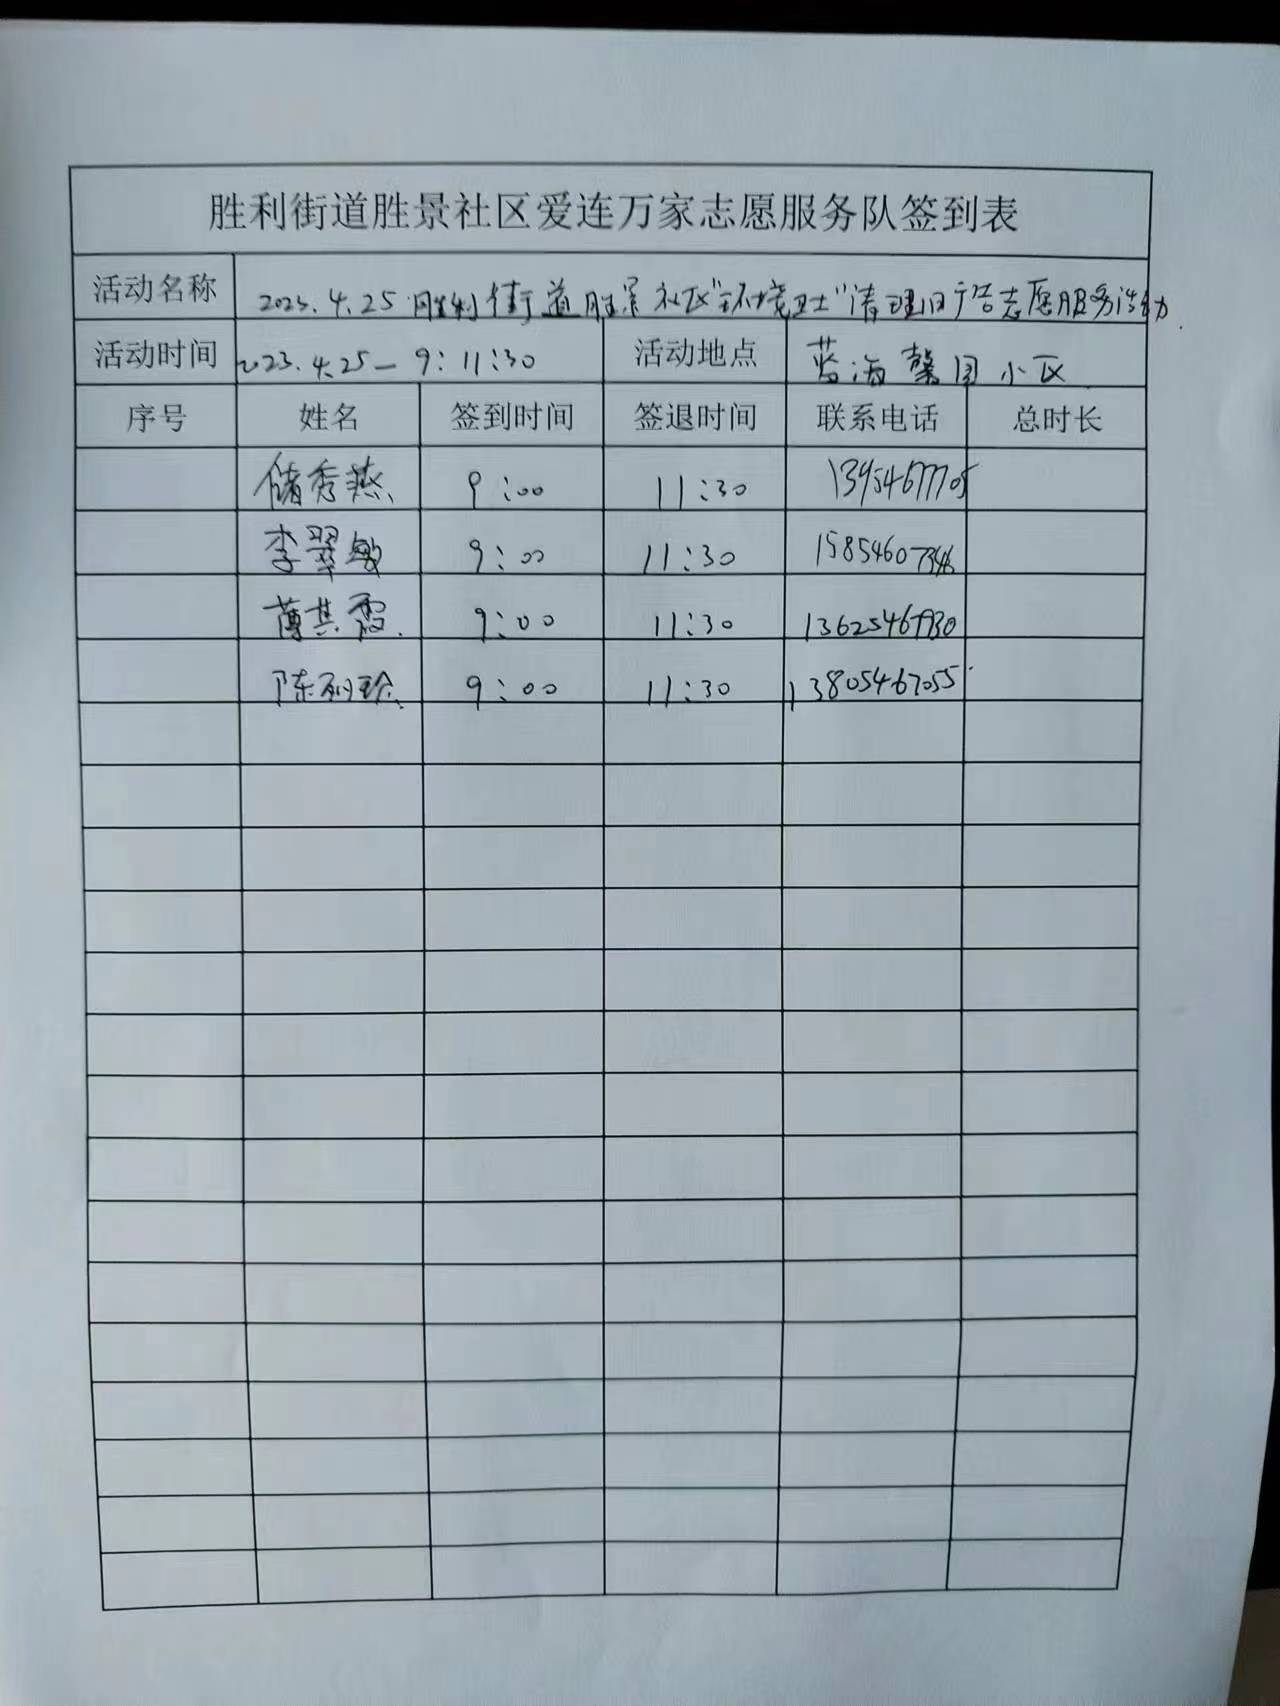 胜利街道胜景社区爱连万家志愿服务队签到表
活动名称 2023.4.25 胜利街道胜景社区"环境卫士"清理旧广告志愿服务活动
活动时间 2023.4.25— 9: 11:30 活动地点 蓝海馨园小区
序号 姓名 签到时间 签退时间 联系电话 总时长
储秀燕 9:00 11:30 13954677705
李翠敏 9:00 11:30
薄其霞 9:00 11:30
陈利珍 9:00 11:30 13805467055